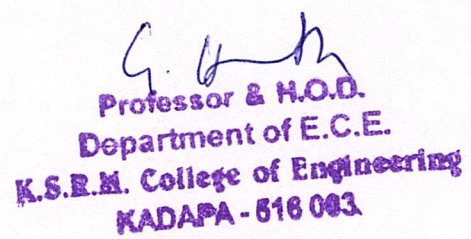 G.
Professor & H.O.D.
Department of E.C.E.
K.S.R.M. College of Engineering
KADAPA - 516 003.